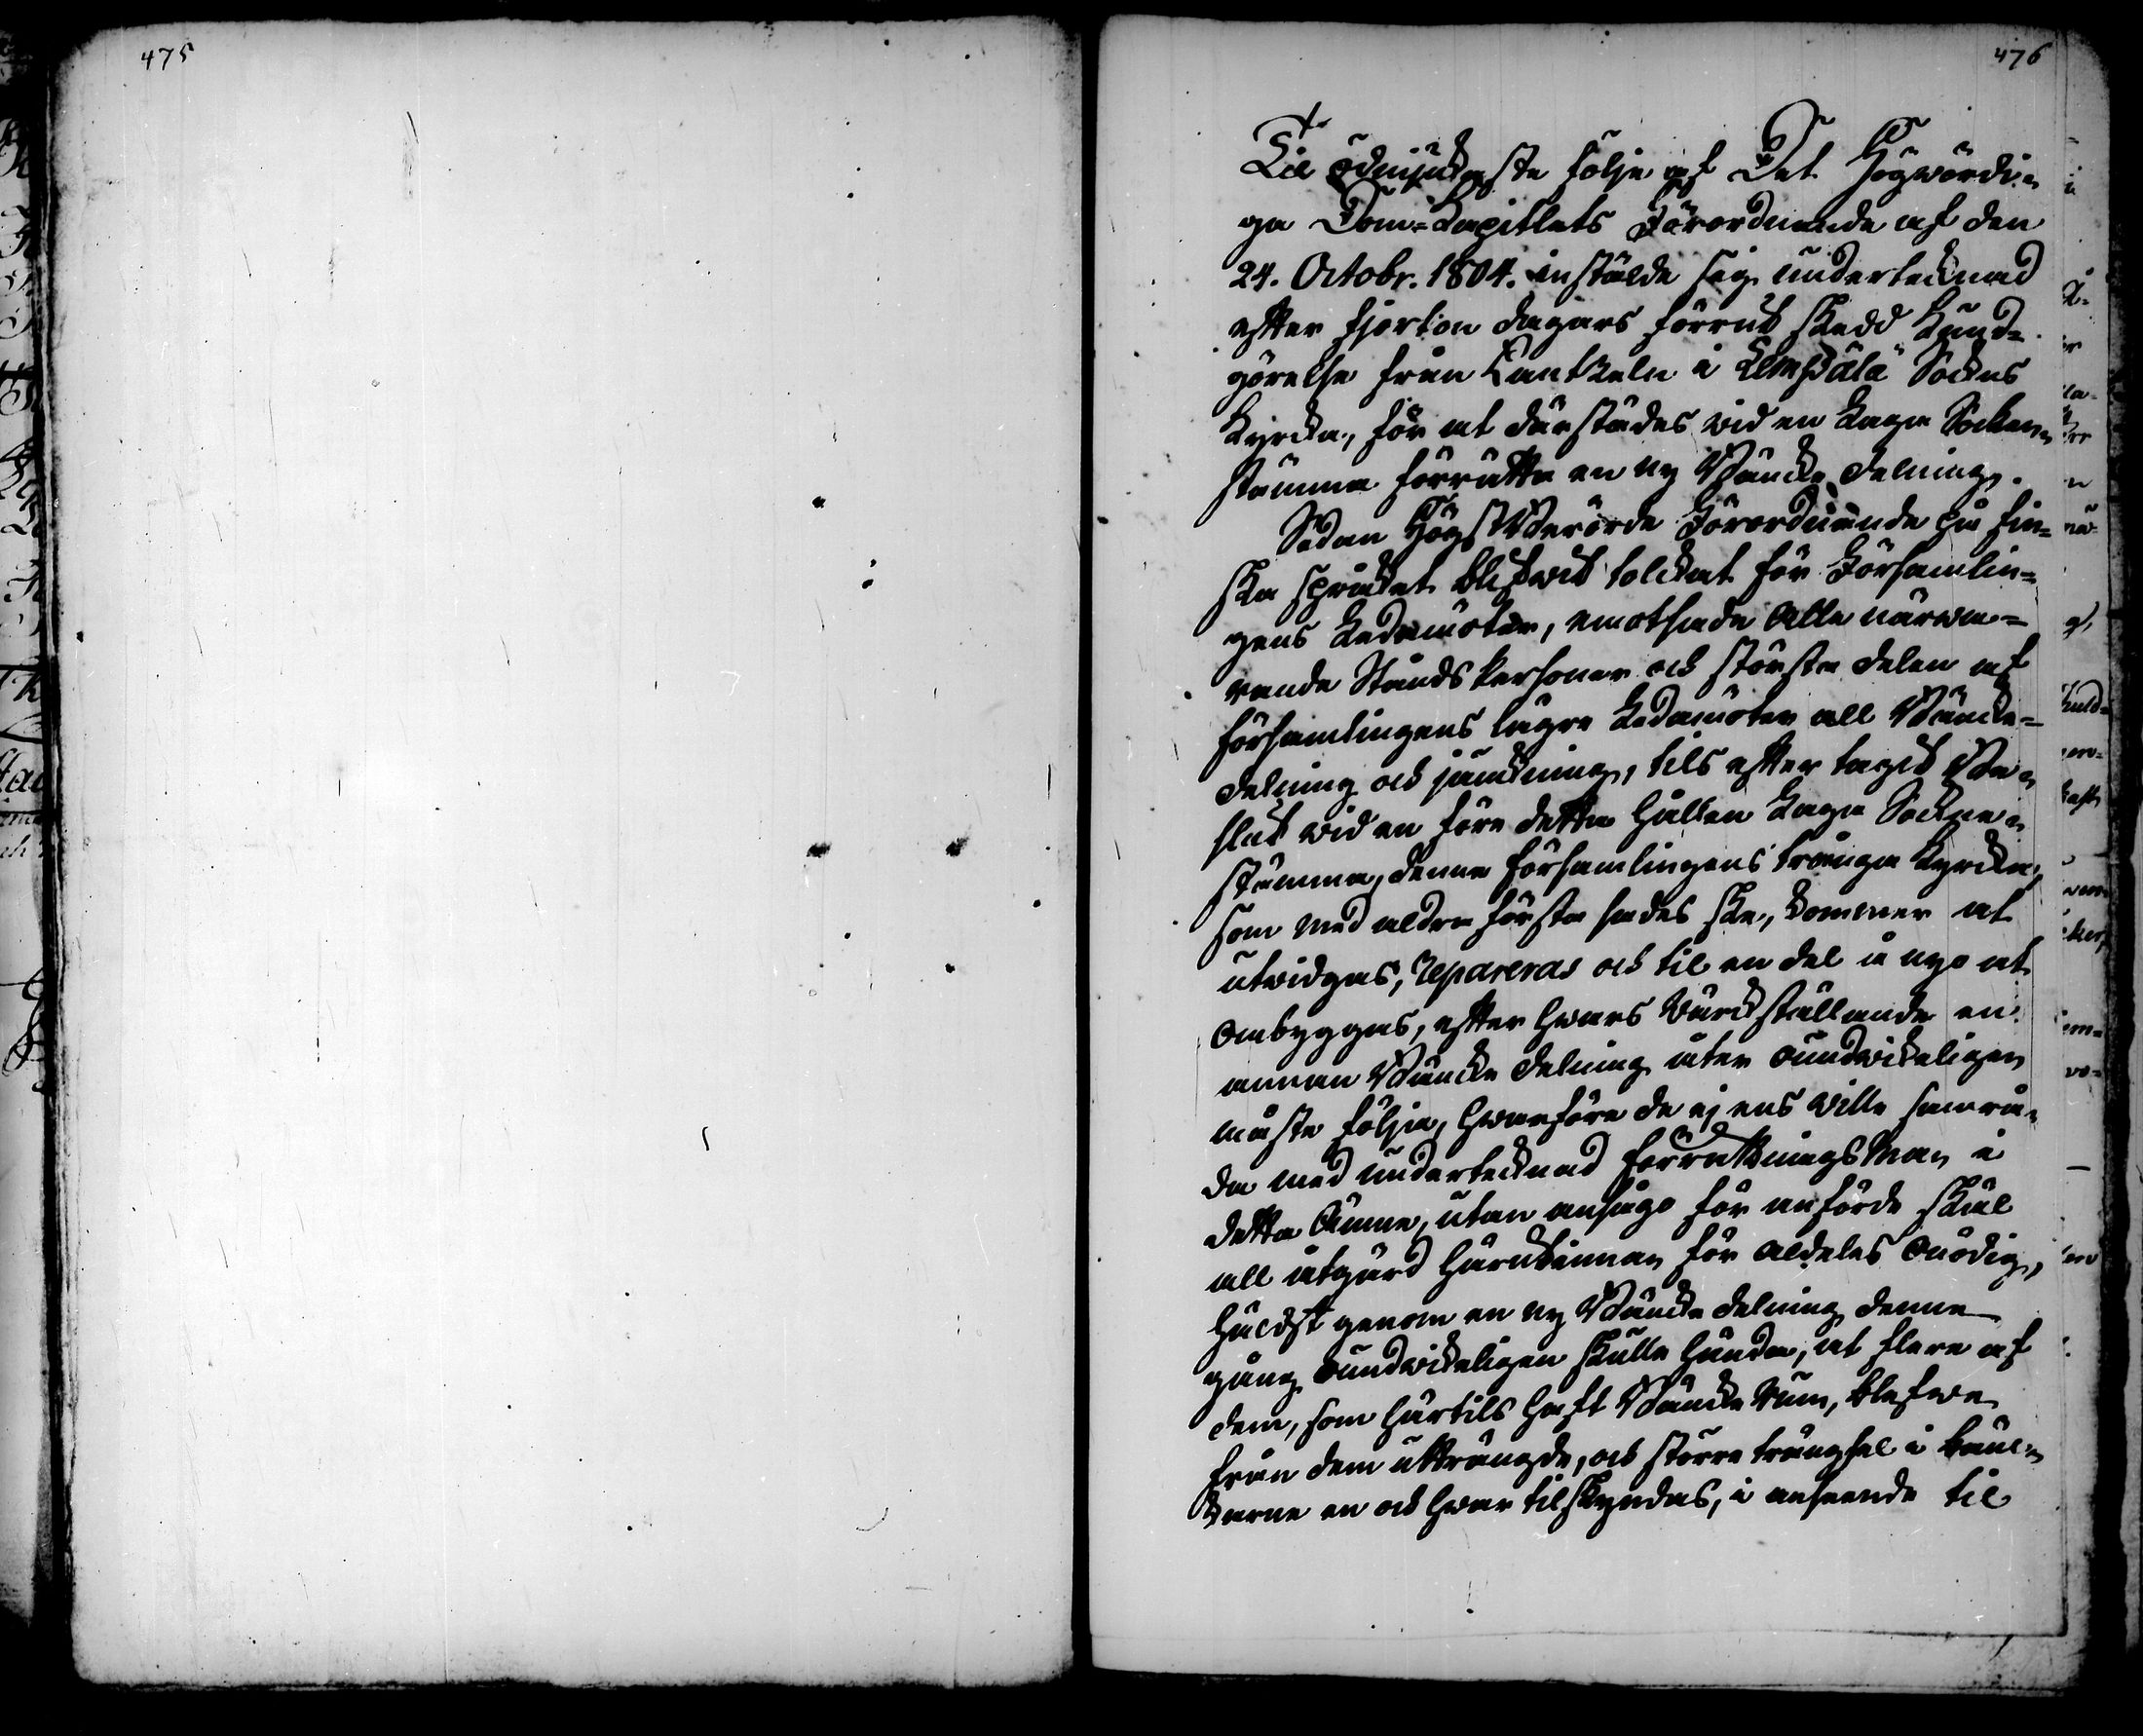 475
476
Til ödmjukaste följe af Det Högwördi=
ga Dom=Capitlets Förordnande af den
24. Octobr. 1804. instälde sig undertecknad
efter fjorton dagars förrut skedd Kund=
görelse från Cantzeln i Lempälä Sockns
Kyrcka, för at därstädes wid en Laga Socken=
stämma förrätta en ny Bäncke delning.
Sedan Högst Berörde Förordnande på fin=
ska språket blifwit tolckat för Församlin=
gens Ledamöter, emotsade alla närwa=
rande Stånds Personer och största delen af
församlingens lägre Ledamöter all Bäncke=
delning och jämckning, tils efter tagit Be=
slut wid en före detta hållen Laga Sockne=
stämma, denne församlingens trånga Kyrcka,
som med aldra första sades ske, kommer at
utwidgas, repareras och til en del å nyo at
ombyggas, efter hwars wärckställande en
annan Bäncke delning åter oundwikeligen
måste följa, hwarföre de ej ens wille samrå=
da med undertecknad förrättningsman i
detta ämne, utan ansågo för anförde skäl
all åtgärd härutinnan för aldeles onödig,
hälst genom en ny Bäncke delning denne
gång oundwikeligen skulle hända, at flere af
dem, som härtils haft Bäncke rum, blefwe
från dem utträngde, och större trängsel i bänc=
karne en och hwar tilskyndas, i anseende til